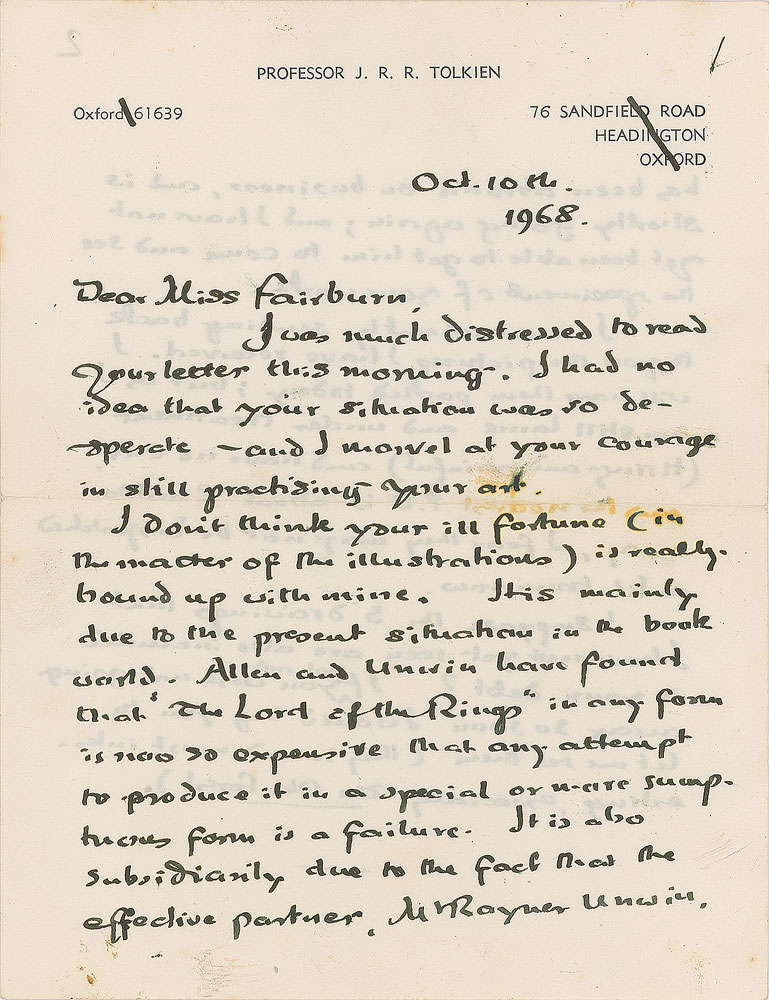 PROFESSOR J. R. R. TOLKIEN
Oxford 61639
76 SANDFIELD ROAD
HEADINGTON
OXFORD
Oct. 10th.
1968.
Dear Miss Fairburn,
I was much distressed to read
your letter this morning. I had no
idea that your situation was so de-
sperate – and I marvel at your courage
in still practising your art.
I don't think your ill fortune (in
the matter of the illustrations) is really
bound up with mine. It is mainly
due to the present situation in the book
world. Allen and Unwin have found
that "The Lord of the Rings" in any form
is now so expensive that any attempt
to produce it in a special or more sump-
tuous form is a failure. It is also
subsidiarily due to the fact that the
effective partner, Mr Rayner Unwin,